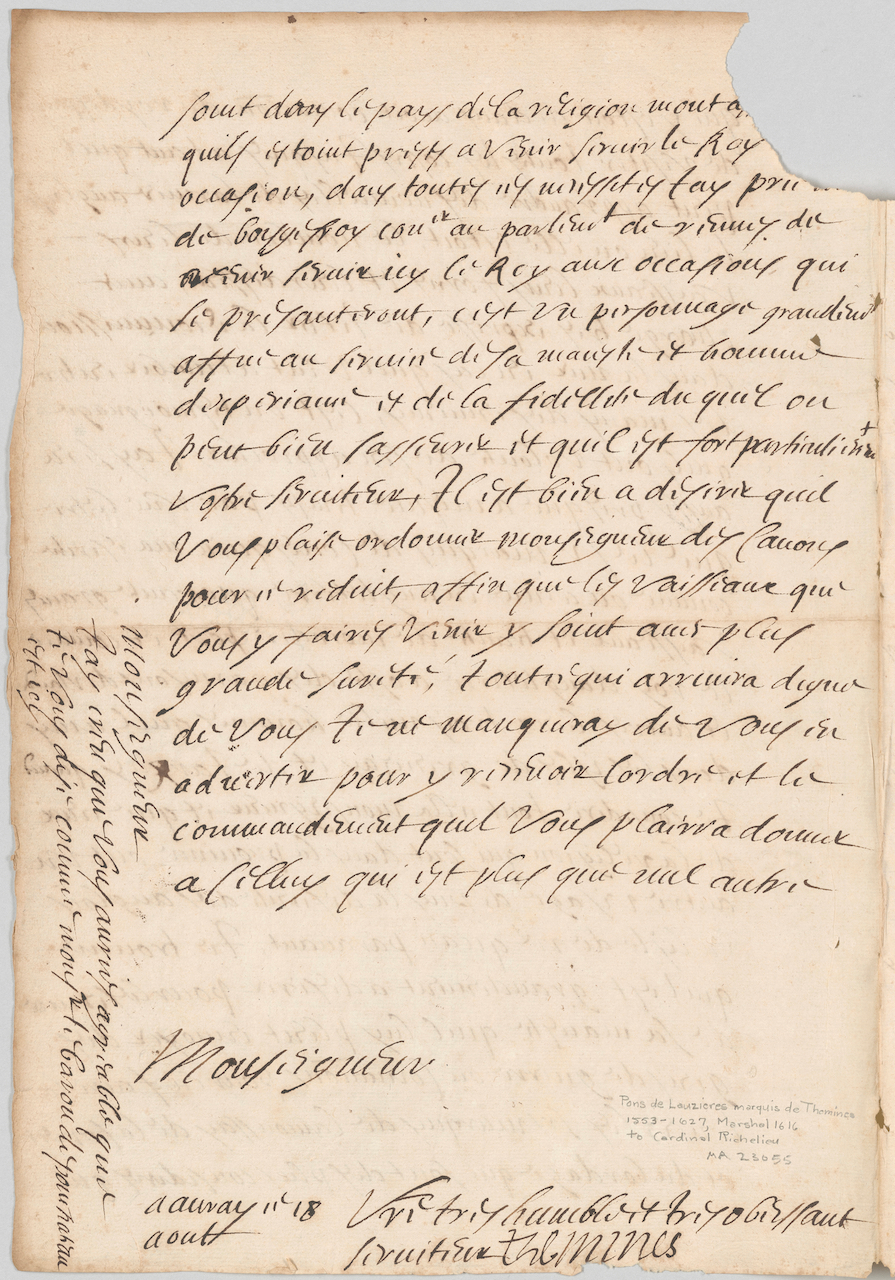 soint dans le pays de la religion mont a
quilz estoint prests a venir servir le Roy
occasion, dans toutes ces nécessités Jay prié
de boysgeffroy con.er au parlem.t de rennes de
venir servir icy le Roy aux occasions qui
se présanteront, cest un personnage grandem.t
affné au servise de sa maiesté et homme
dexperiance et de la fidellité du quel on
peut bien sasseurer et quil est fort particulierem.t
vostre serviteur, Il est bien a désirer quil
Vous plaise ordonner monseigneur des canons
pour ce réduit, affin que les vaisseaux que
Vous y faires venir y soint avec plus
grande sureté, tout ce qui arrivera digne
de Vous Je ne manqueray de Vous en
advertir pour y recevoir lordre et le
commandement quel Vous plairra donner
a celluy qui est plus que nul autre
Monseigneur
a auray ce 18
aoust
Vre tres humble et tres obeissant
serviteur Themines
Monseigneur
Jay creu que Vous auriés agréable que
Je Vous dise comme mons.r le baron de
est icy
Pons de Lauzières marquis de Themines
1553-1627, Marshal 1616
to Cardinal Richelieu
MA 23055